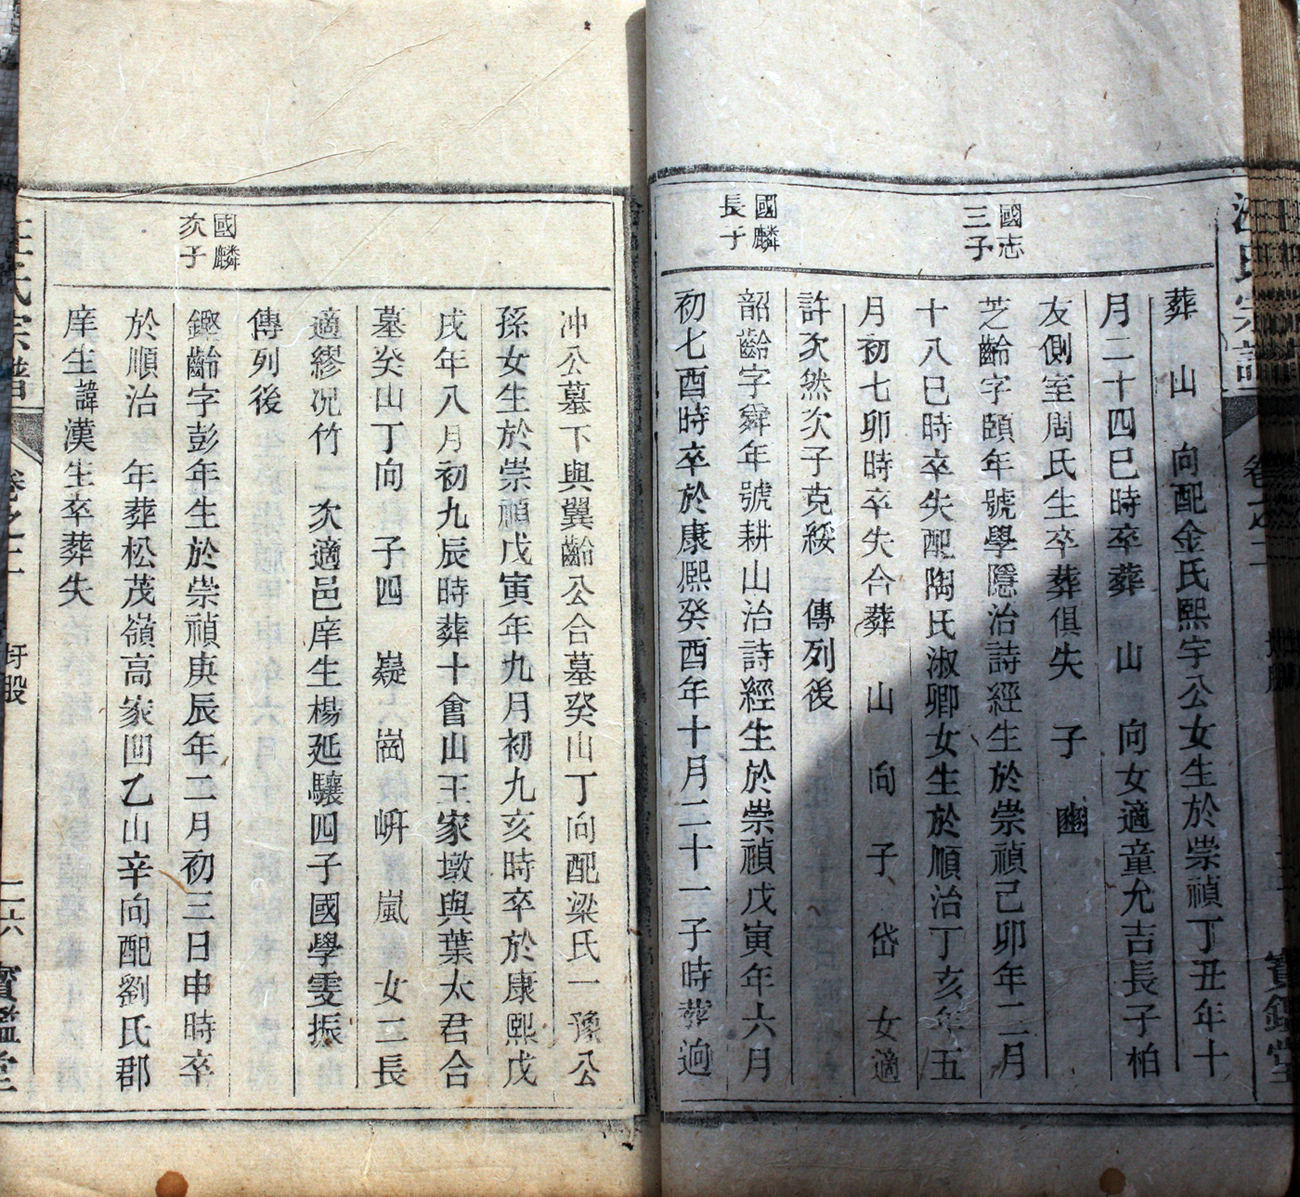 葬　山　向配金氏熙宇公女生於崇禎丁丑年十
月二十四巳時卒葬　山　向女適童允吉長子柏
友側室周氏生卒葬俱失　子　豳
國志
三子
芝齡字頤年號學隱治詩經生於崇禎己卯年二月
十八巳時卒失配陶氏淑卿女生於順治丁亥年五
月初七卯時卒失合葬　山　向　子　岱　女適
許次然次子克綏　傳列後
國麟
長子
韶齡字舜年號耕山治詩經生於崇禎戊寅年六月
初七酉時卒於康熙癸酉年十月二十一子時葬迥
冲公墓下與翼齡公合墓癸山丁向配梁氏一豫公
孫女生於崇禎戊寅年九月初九亥時卒於康熙戊
戌年八月初九辰時葬十會山王家墩與葉太君合
墓癸山丁向　子四　嶷　崗　岍　嵐　女二長
適繆况竹二　次適邑庠生楊延驤四子國學雯振
傳列後
國麟
次子
鏗齡字彭年生於崇禎庚辰年二月初三日申時卒
於順治　年葬松茂嶺高家凹乙山辛向配劉氏郡
庠生諱漢生卒葬失
汪氏宗譜　卷之二　圩股　二六　寶鑑堂